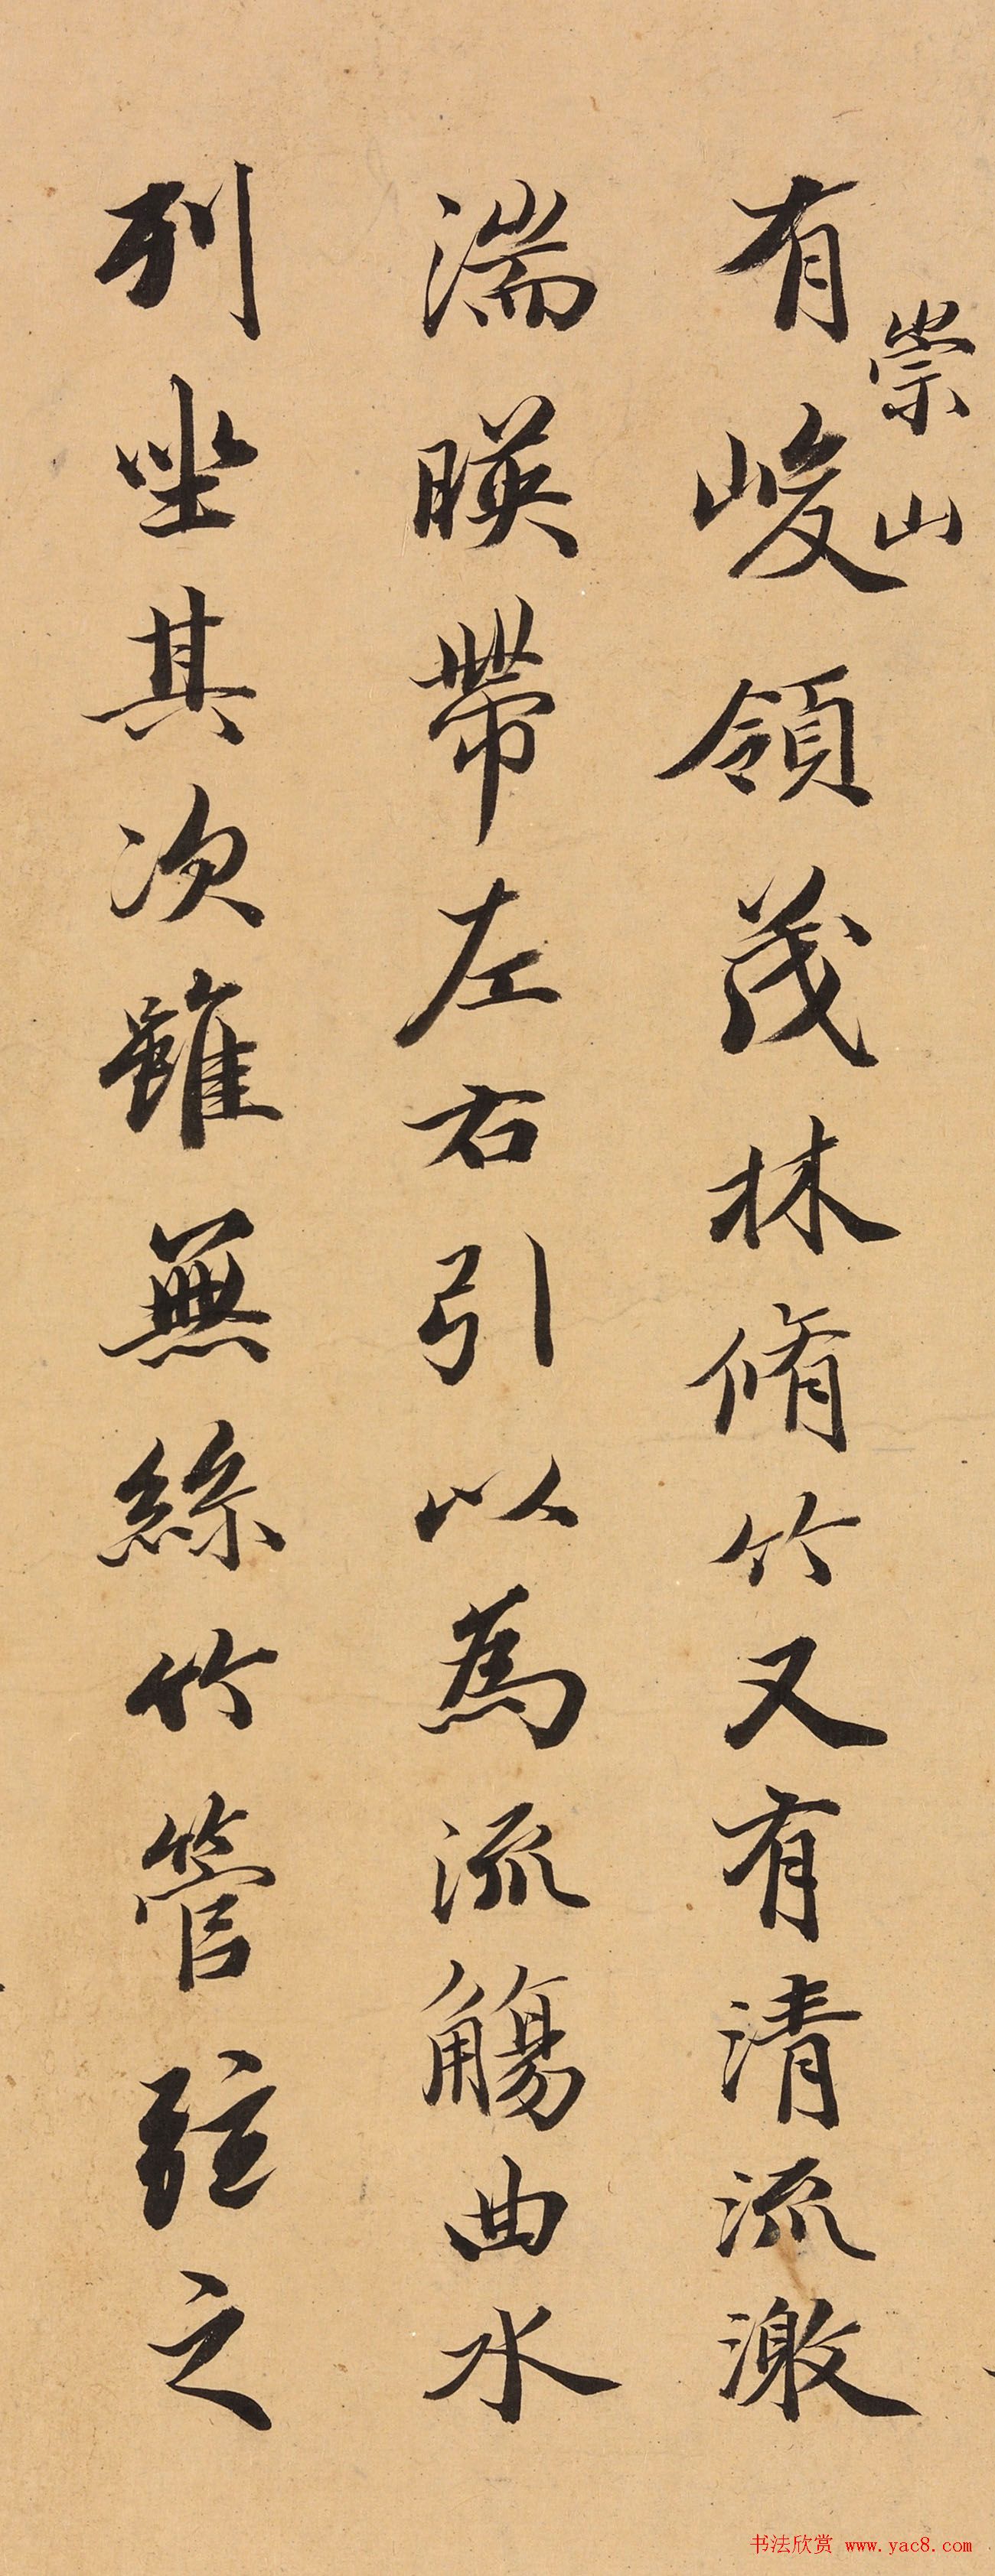 有崇山峻領茂林脩竹又有清流激
湍暎帶左右引以爲流觴曲水
列坐其次雖無絲竹管弦之
书法欣赏 www.yac8.com